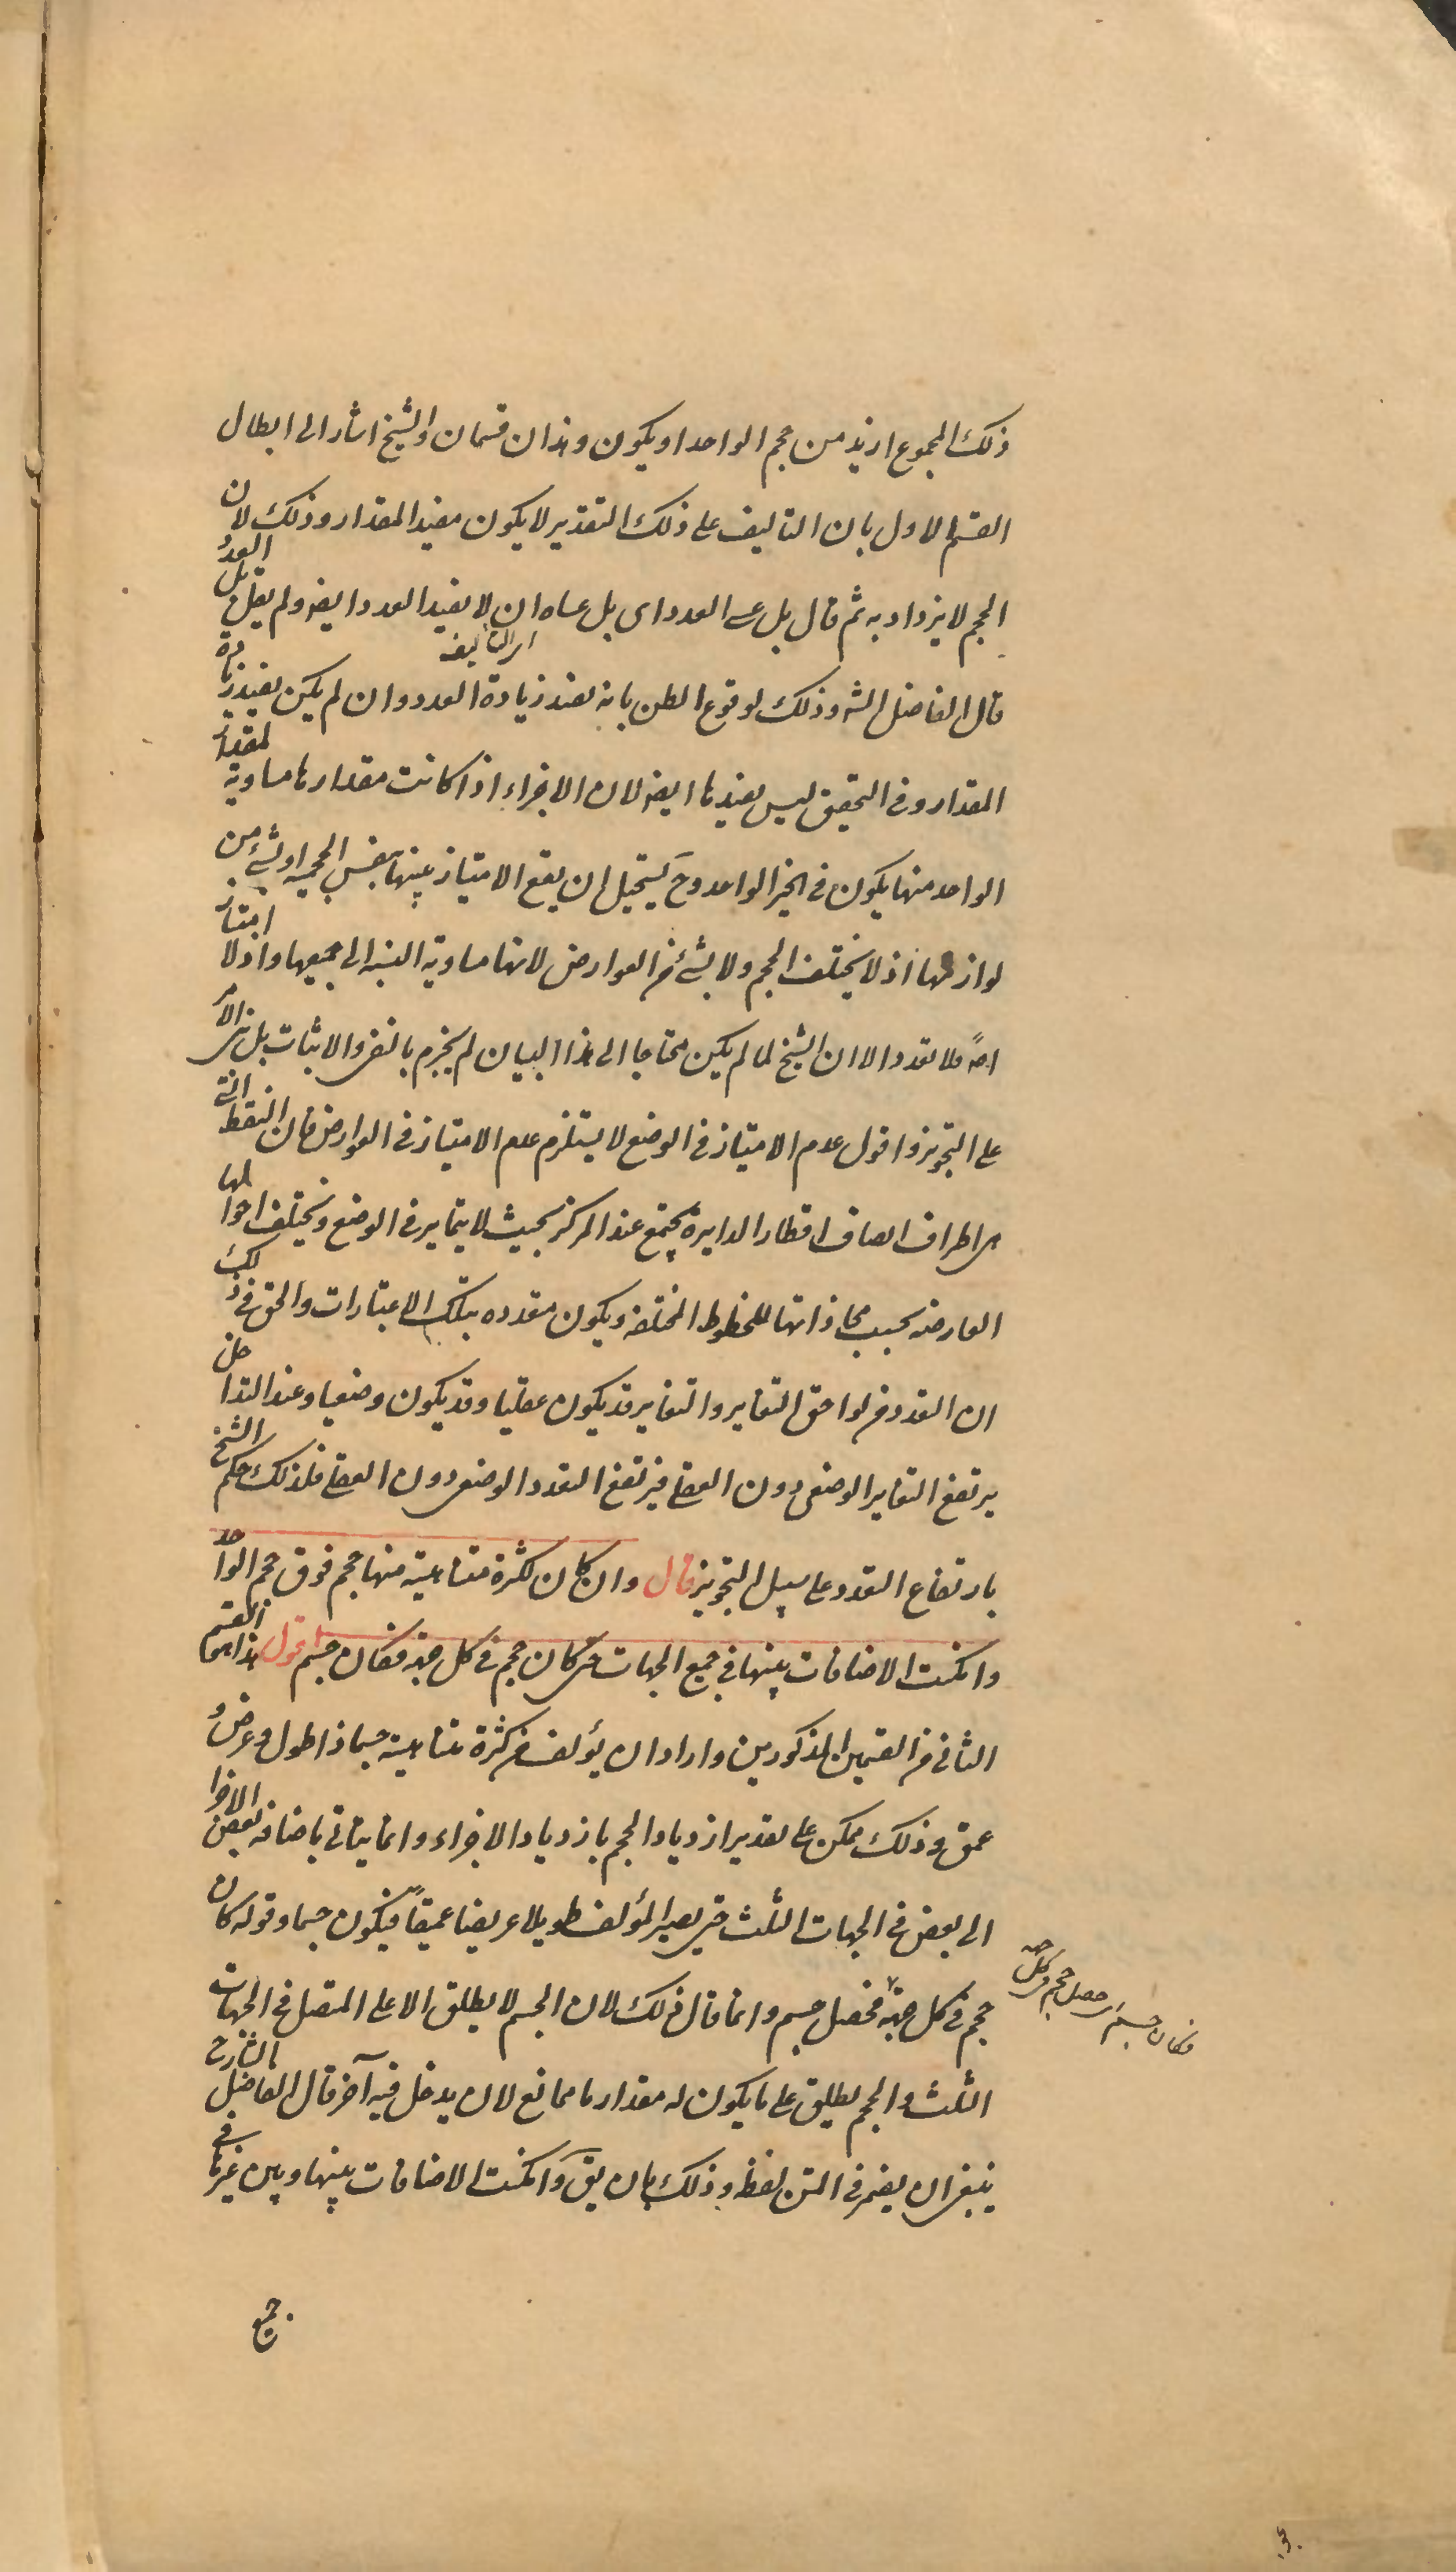 ذلك المجموع ازيد من حجم الواحد او يكون وهذان قسمان والشيخ اشار الى ابطال
القسم الاول بان التاليف على ذلك التقدير لا يكون مفيد المقدار وذلك لان
الحجم لا يزداد به ثم قال بل عسى العدد اى بل عساه ان لا يفيد العدد ايضه ولم يقل بل العدد
اى التاليف
قال الفاضل الشه وذلك لوقوع الظن بانه يفيد زيادة العدد وان لم يكن يفيد زيادة
المقدار وفى التحقيق ليس يفيدها ايضه لان الاجزاء اذا كانت مقدارها مساوية لمقدار
الواحد منها يكون فى الحيز الواحد وح يستحيل ان يقع الامتياز بينها بنفس الحجمية او بشئ من
لوازمها اذ لا يختلف الحجم ولا بشئ من العوارض لانها مساوية النسبه الى جميعها واذ لا امتياز
اصً فلا تعدد الا ان الشيخ لما لم يكن محتاجا الى هذا البيان لم يجزم بالنفى والاثبات بل بنى الامر
على التجويز واقول عدم الامتياز فى الوضع لا يستلزم عدم الامتياز فى العوارض فان النقط التى
هى اطراف انصاف اقطار الدايرة يجتمع عند المركز بحيث لا يتمايز فى الوضع ويختلف احوالها
العارضه بحسب محاذاتها للخطوط المختلفه ويكون متعدده بتلك الاعتبارات والحق فى ذلك
ان التعدد من لواحق التغاير والتغاير قد يكون عقليا وقد يكون وضعيا وعند التداخل
يرتفع التغاير الوضعى دون العقلى فيرتفع التعدد الوضعى دون العقلى فلذلك حكم الشيخ
بارتفاع التعدد على سبيل التجويز قال وان كان لكثرة متناهية منها حجم فوق حجم الواحد
وامكنت الاضافات بينها فى جميع الجهات حتى كان حجم فى كل جهة فكان جسم اقول هذا هو القسم
الثانى من القسمين المذكورين واراد ان يؤلف من كثرة متناهية جسما ذا طول وعرض و
عمق وذلك ممكن على تقدير ازدياد الحجم بازدياد الاجزاء وانما يتاتى باضافة بعض الاجزا
الى بعض فى الجهات الثلث حتى يصير المؤلف طويلا عريضا عميقاً فيكون جسما وقوله كان
حجم فى كل جهة فحصل جسم وانما قال ذلك لان الجسم لا يطلق الا على المتصل فى الجهات
فكان جسم اى حصل حجم فى كل جهه
الثلث والحجم يطلق على ما يكون له مقدار ما ممانع لان يدخل فيه آخر قال الفاضل الشارح
ينبغى ان يضمر فى المتن لفظه وذلك بان يق وامكنت الاضافات بينها وبين غيرها فى
جميع